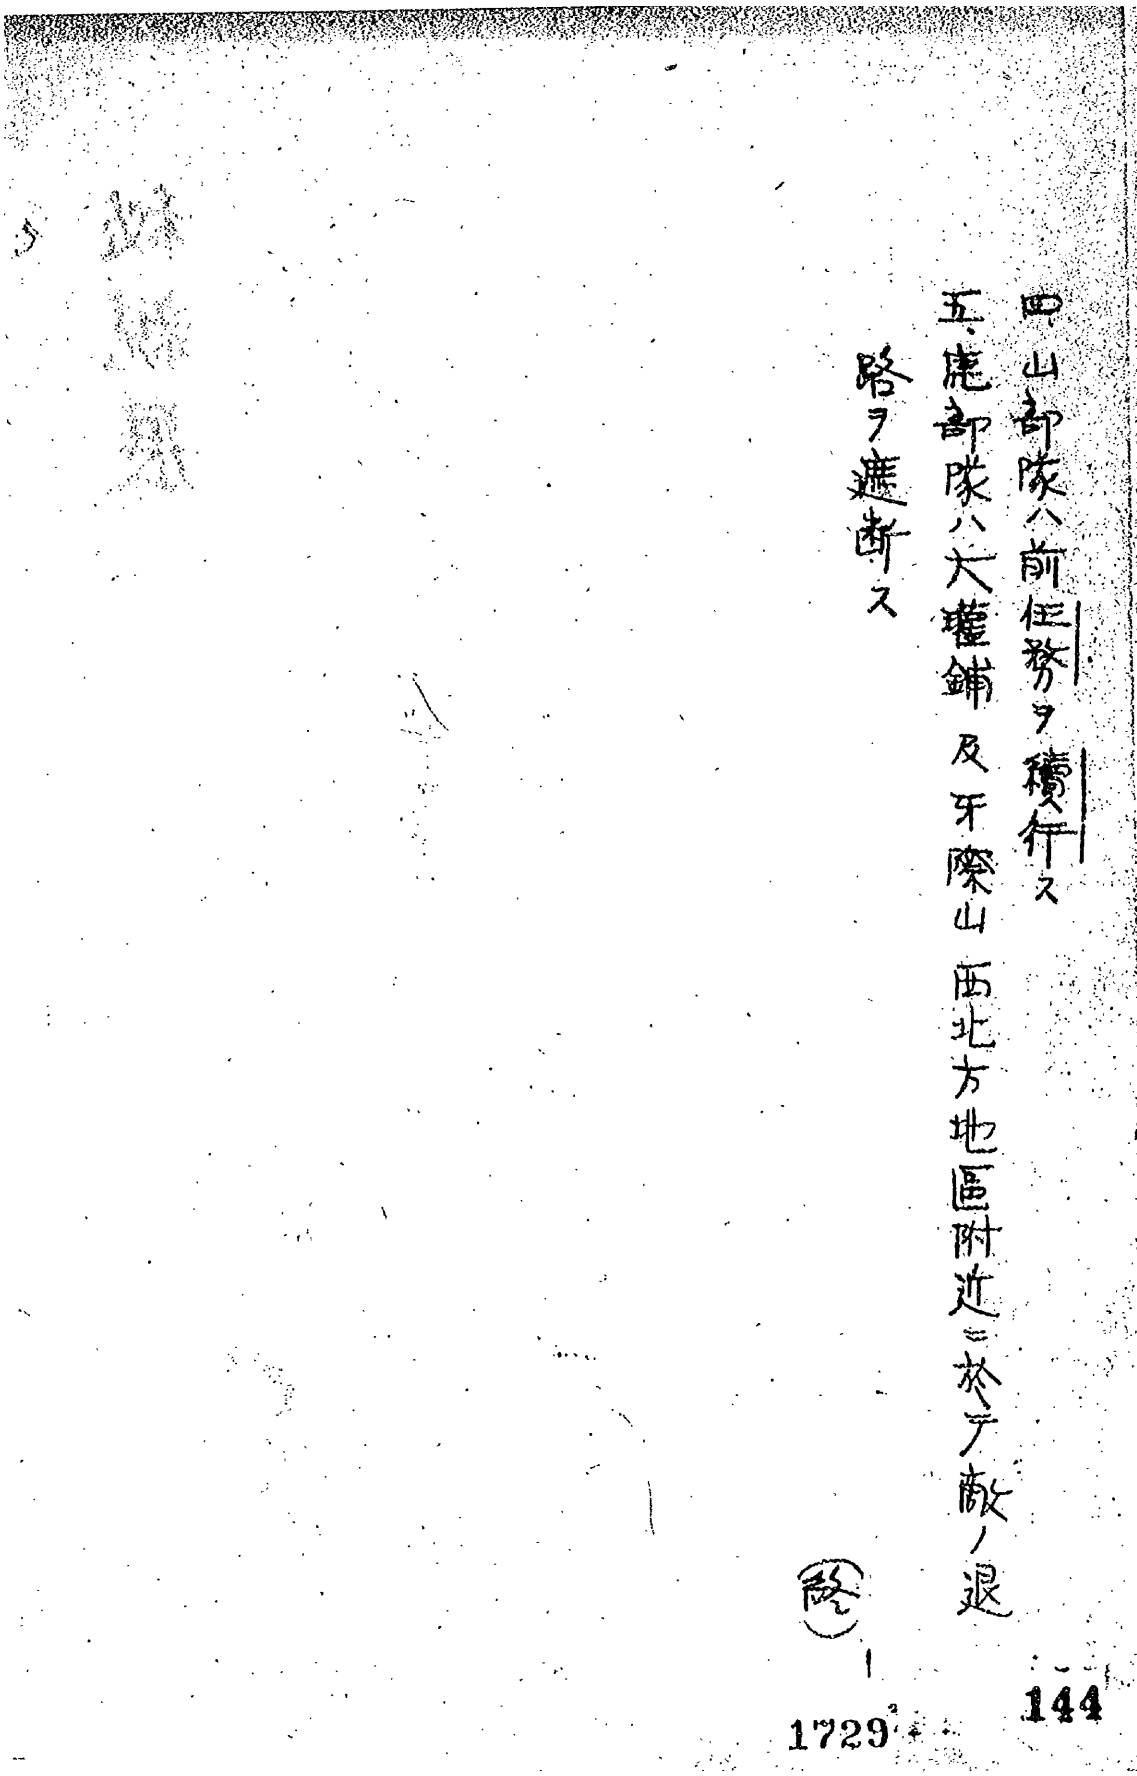 四、山部隊ハ前任務ヲ續行ス
五、鹿部隊ハ大瓘鋪及牙際山西北方地區附近ニ於テ敵ノ退
路ヲ遮断ス
(終)
144
1729